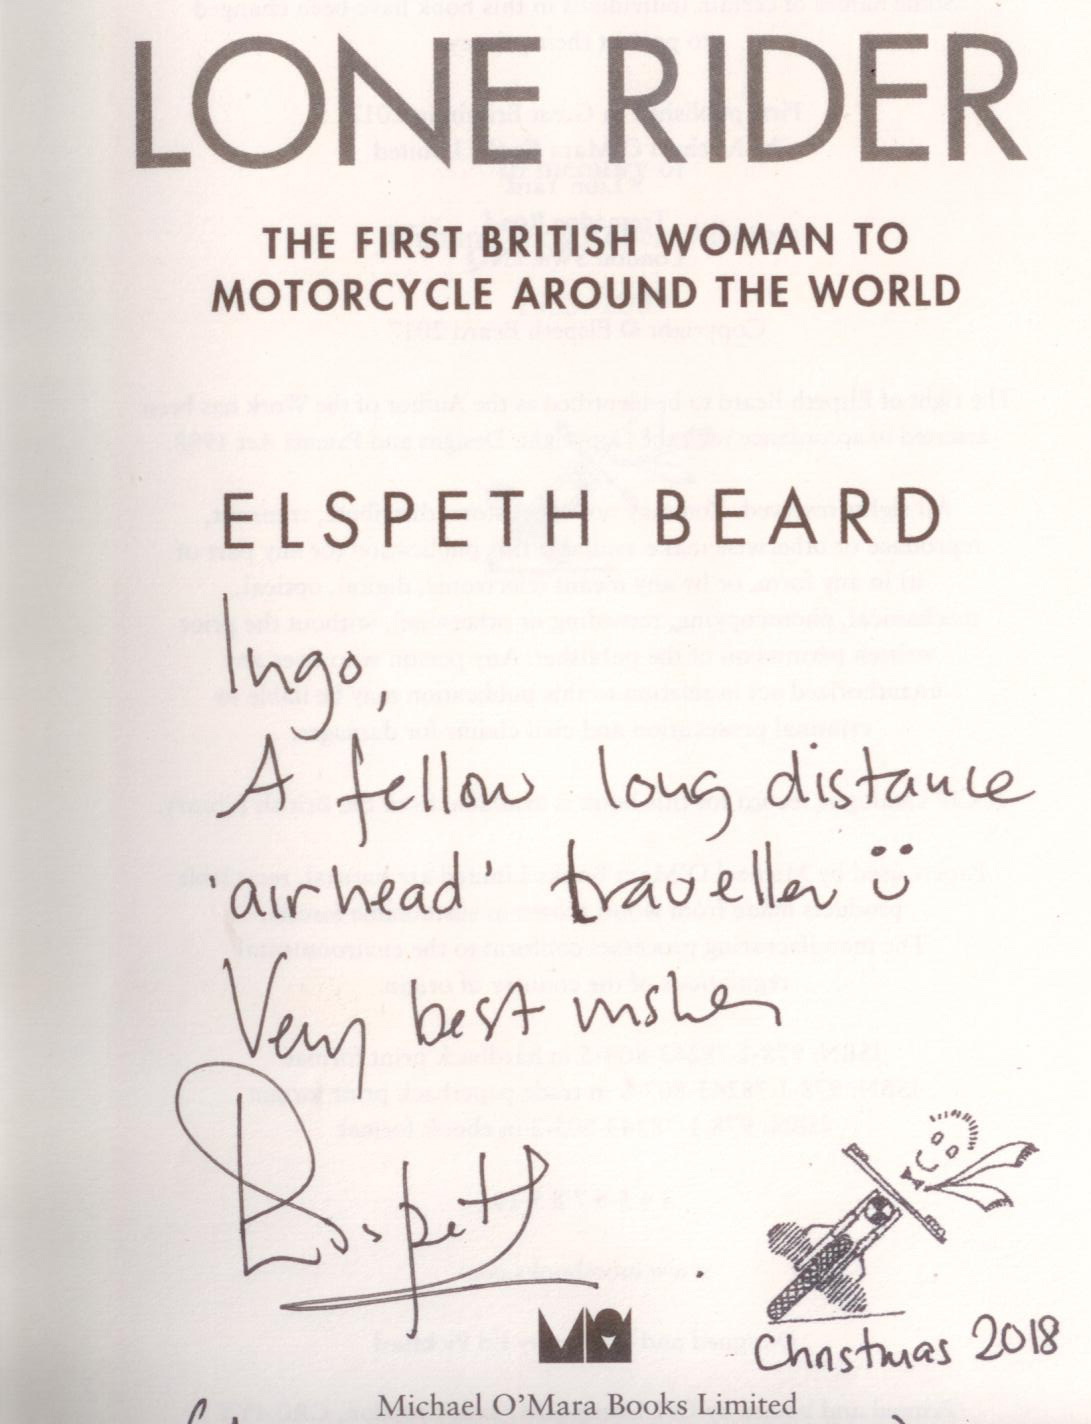 LONE RIDER
THE FIRST BRITISH WOMAN TO
MOTORCYCLE AROUND THE WORLD
ELSPETH BEARD
Ingo,
A fellow long distance
'airhead' traveller ü
Very best wishes
Elspeth
Christmas 2018
Michael O'Mara Books Limited